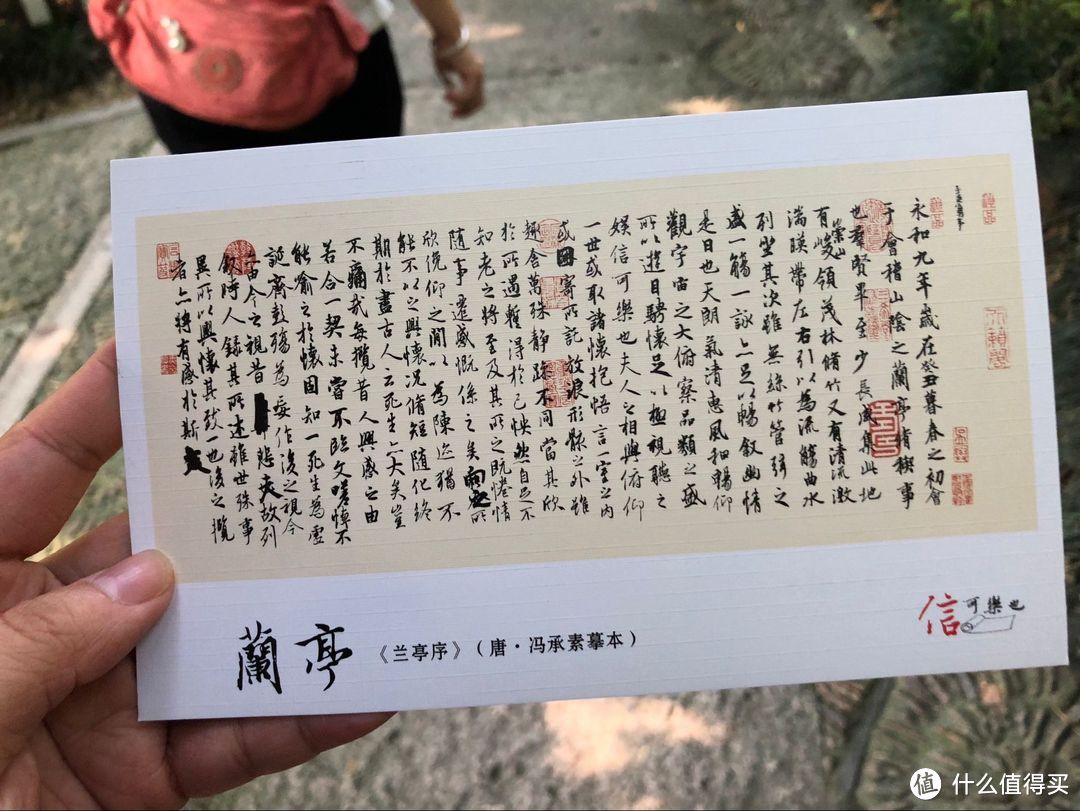 永和九年歲在癸丑暮春之初會
于會稽山陰之蘭亭脩稧事
也羣賢畢至少長咸集此地
有崇山峻領茂林脩竹又有清流激
湍暎帶左右引以為流觴曲水
列坐其次雖無絲竹管弦之
盛一觴一詠亦足以暢敘幽情
是日也天朗氣清惠風和暢仰
觀宇宙之大俯察品類之盛
所以遊目騁懷足以極視聽之
娛信可樂也夫人之相與俯仰
一世或取諸懷抱悟言一室之內
或因寄所託放浪形骸之外雖
趣舍萬殊靜躁不同當其欣
於所遇暫得於己怏然自足不
知老之將至及其所之既惓情
隨事遷感慨係之矣向之所
欣俛仰之間以為陳迹猶不
能不以之興懷況脩短隨化終
期於盡古人云死生亦大矣豈
不痛哉每攬昔人興感之由
若合一契未嘗不臨文嗟悼不
能喻之於懷固知一死生為虛
誕齊彭殤為妄作後之視今
亦由今之視昔悲夫故列
敘時人錄其所述雖世殊事
異所以興懷其致一也後之攬
者亦將有感於斯文
蘭亭
《兰亭序》（唐·冯承素摹本）
信可樂也
值 什么值得买